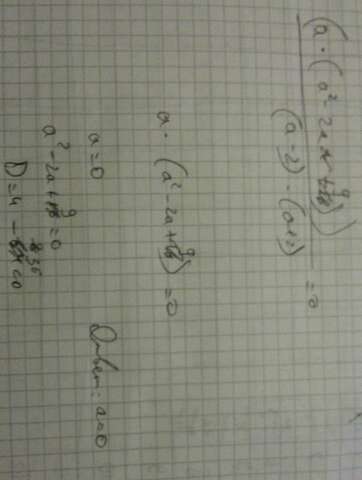 (a · (a² - 2a + 9))
(a-2) · (a+2) = 0
a · (a² - 2a + 9) = 0
a = 0
a² - 2a + 9 = 0
D = 4 - 36 < 0
Ответ: a=0